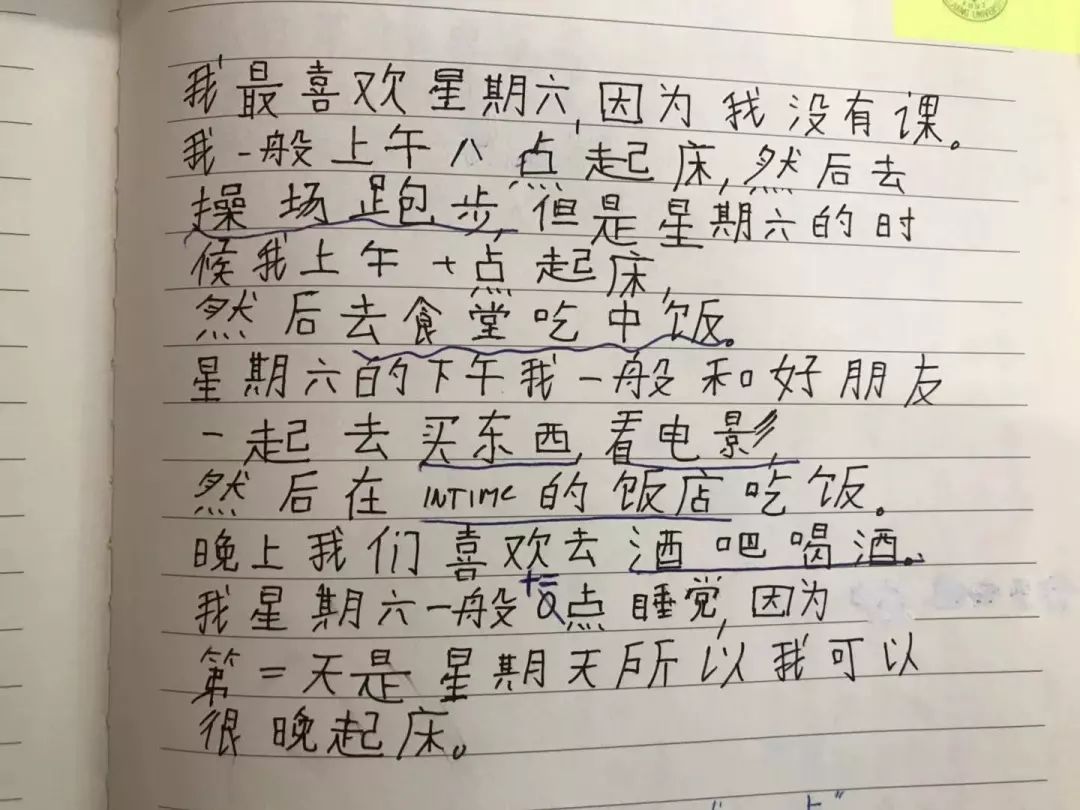 NG UNIVERS
我最喜欢星期六,因为我没有课。
我一般上午八点起床,然后去
操场跑步,但是星期六的时
候我上午十点起床,
然后去食堂吃中饭。
星期六的下午我一般和好朋友
一起去买东西,看电影,
然后在INTIME的饭店吃饭。
晚上我们喜欢去酒吧喝酒。
十二
我星期六一般0点睡觉,因为
第二天是星期天所以我可以
很晚起床。